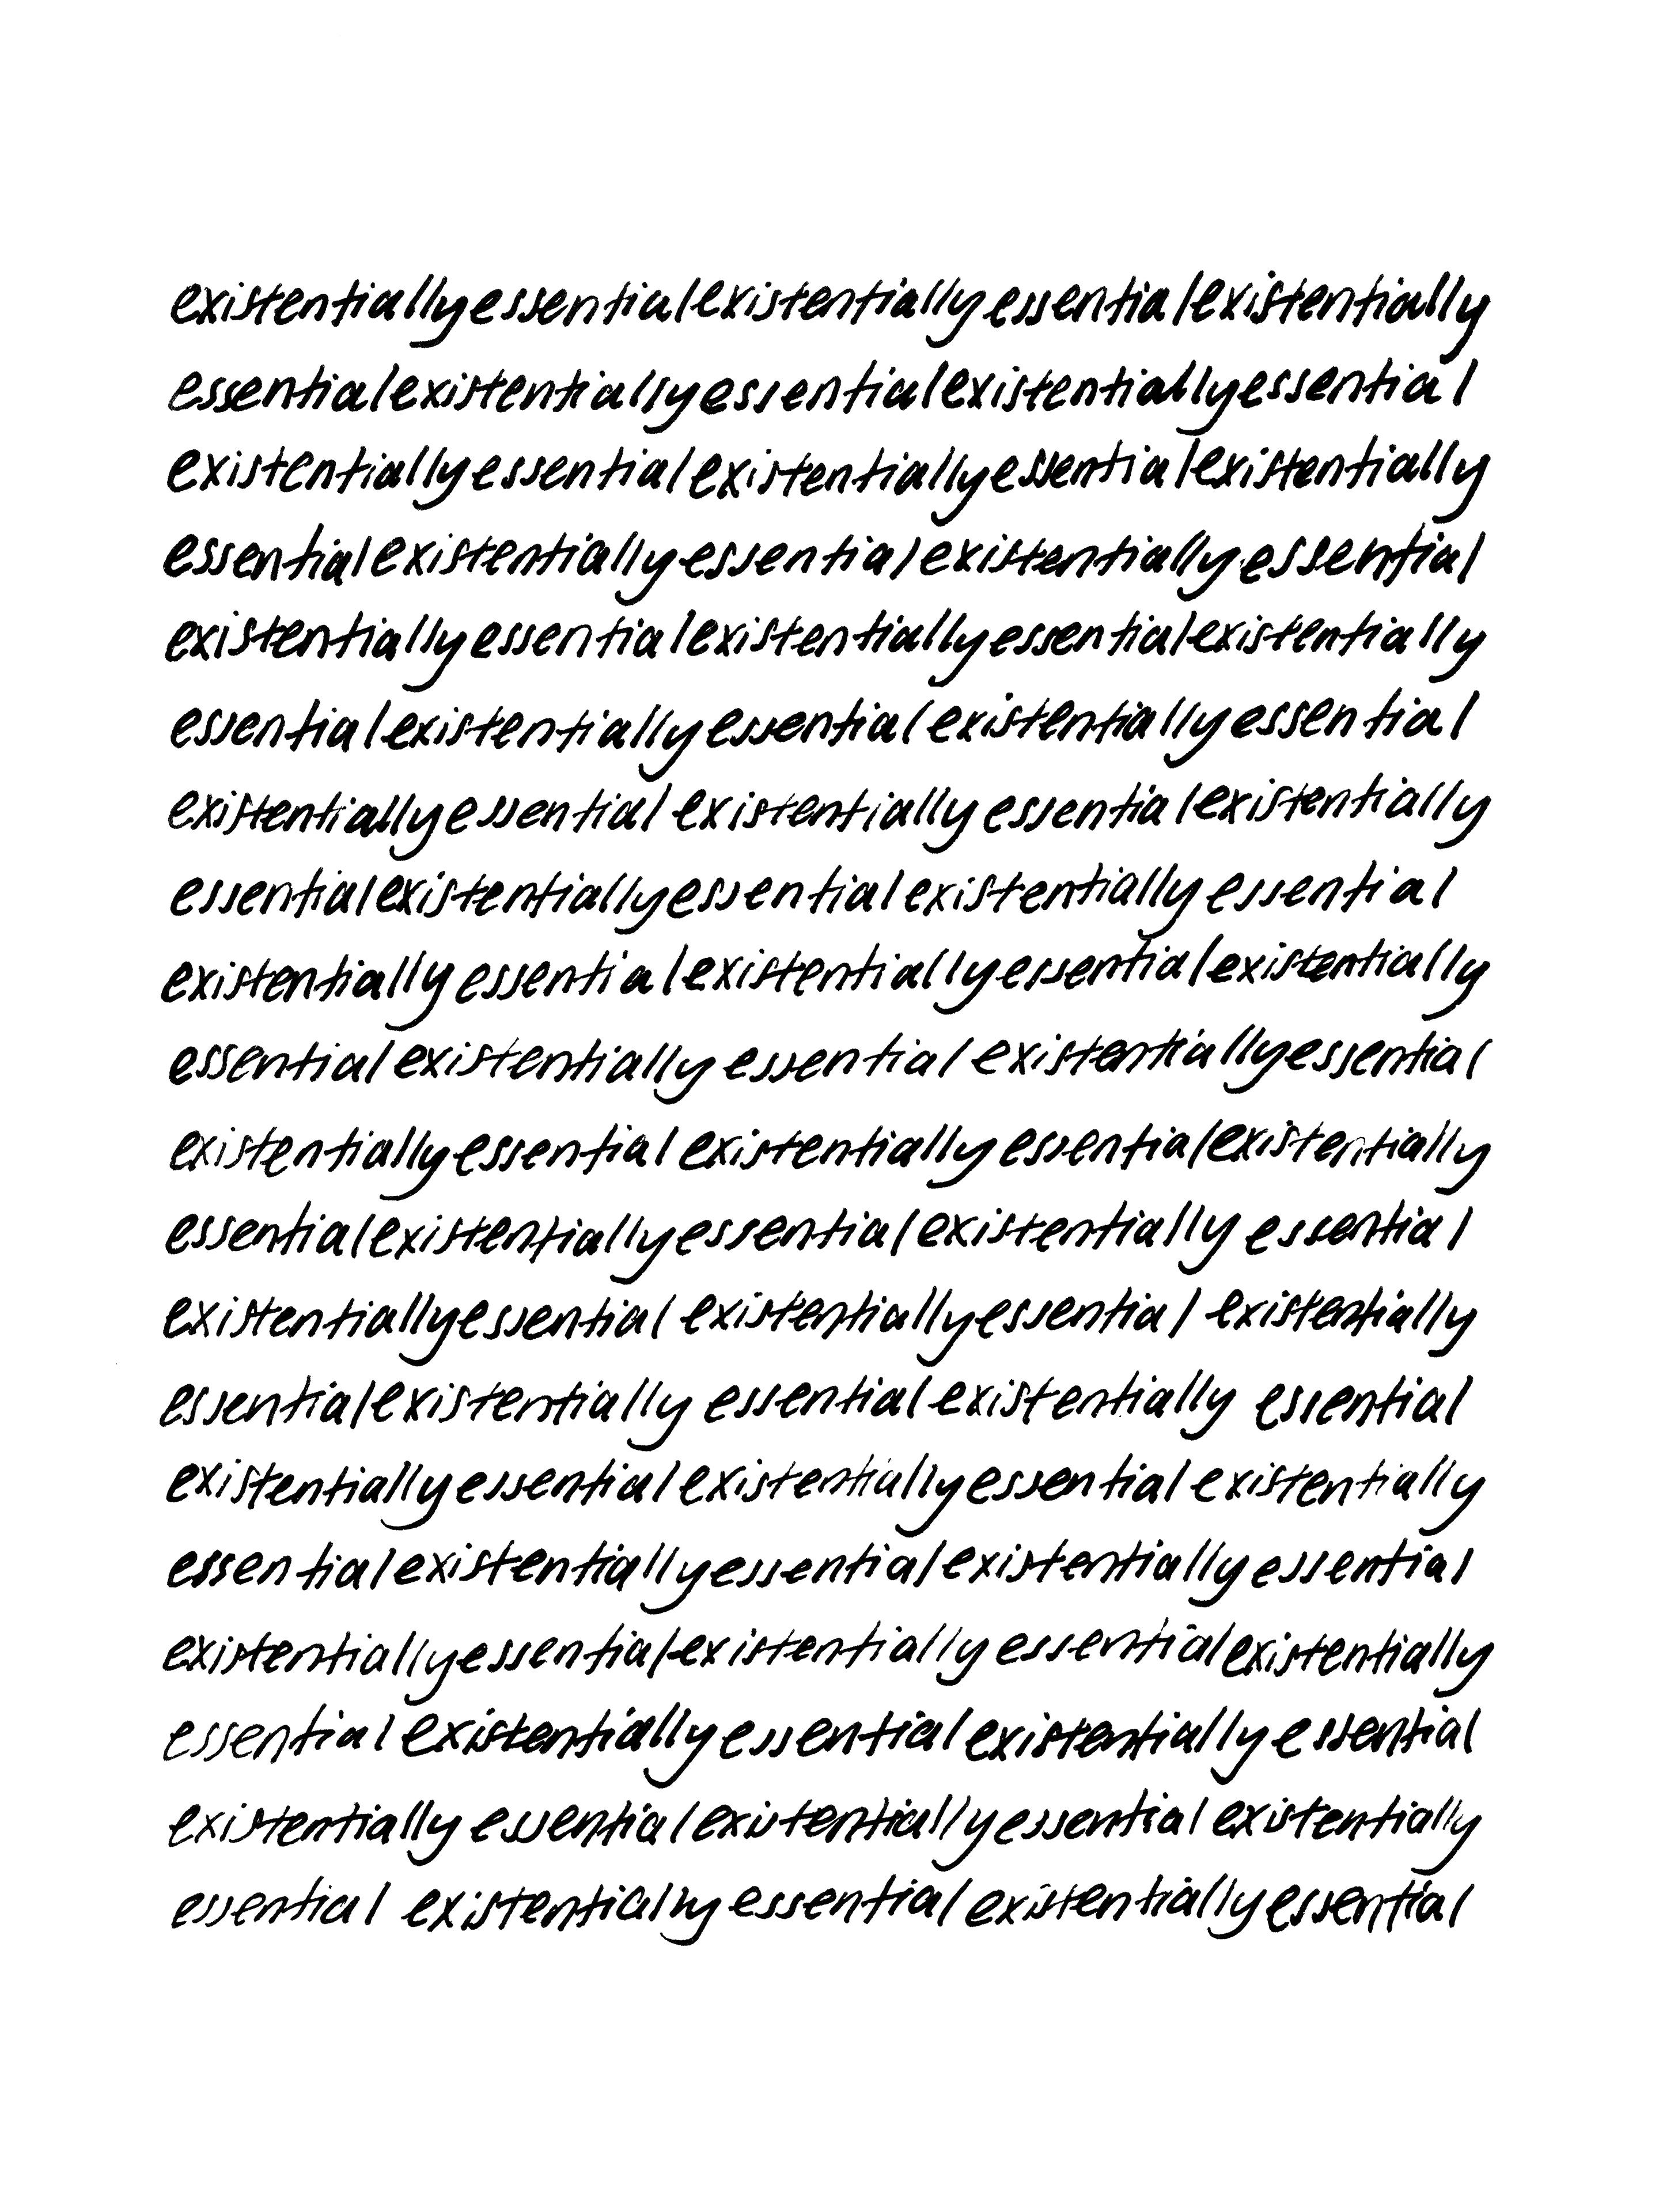 existentiallyessentialexistentiallyessentialexistentially
essentialexistentiallyessentialexistentiallyessential
existentiallyessentialexistentiallyessentialexistentially
essentialexistentiallyessentialexistentiallyessential
existentiallyessentialexistentiallyessentialexistentially
essentialexistentiallyessentialexistentiallyessential
existentiallyessential existentiallyessentialexistentially
essentialexistentiallyessentialexistentiallyessential
existentiallyessentialexistentiallyessentialexistentially
essentialexistentiallyessential existentiallyessential
existentiallyessential existentiallyessentialexistentially
essentialexistentiallyessentialexistentially essential
existentiallyessential existentiallyessential existentially
essentialexistentially essentialexistentially essential
existentiallyessentialexistentiallyessential existentially
essentialexistentiallyessentialexistentiallyessential
existentiallyessentialexistentially essentialexistentially
essential existentiallyessentialexistentiallyessential
existentially essentialexistentiallyessential existentially
essential existentiallyessentialexistentiallyessential